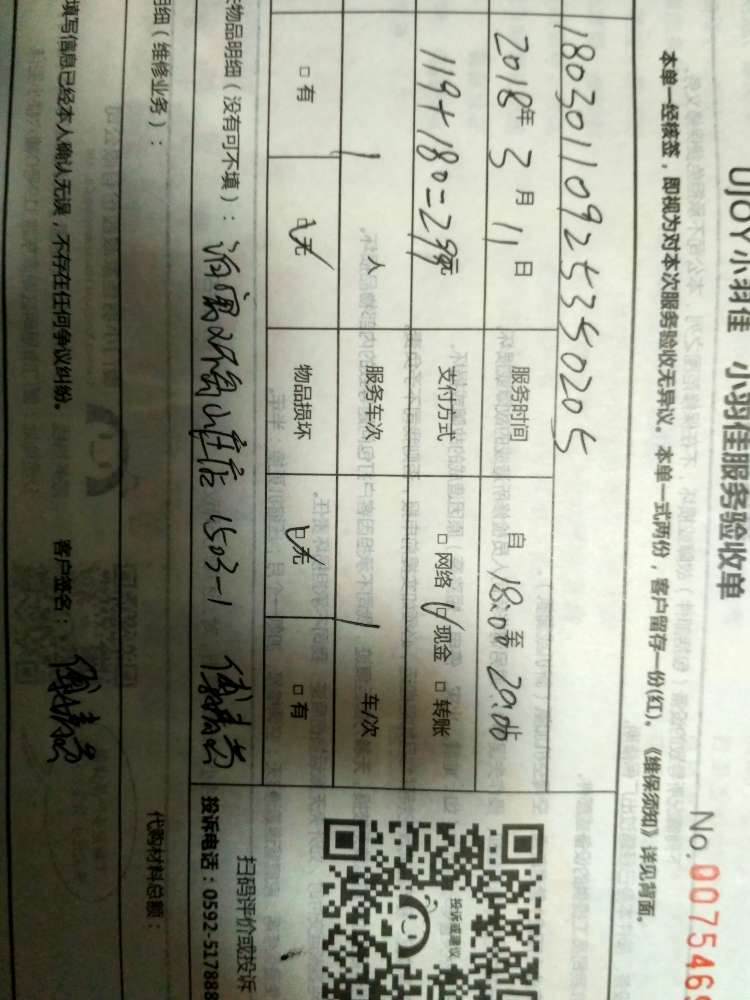 UJOY小羽佳 小羽佳服务验收单
No. 0075469
本单一经核签，即视为对本次服务验收无异议。本单一式两份，客户留存一份(红)。《维保须知》详见背面。
180301109253350205
2018年3月11日 服务时间 自18:00至20:06
119+180=299元 支付方式 □网络 ☑现金 □转账
1人 服务车次 1 车/次
□有 ☑无 物品损坏 ☑无 □有
物品明细（没有可不填）： 1503-1
明细（维修业务）：
代购材料总额：
填写信息已经本人确认无误，不存在任何争议纠纷。 客户签名：
投诉或建议
扫码评价或投诉
投诉电话：0592-517888